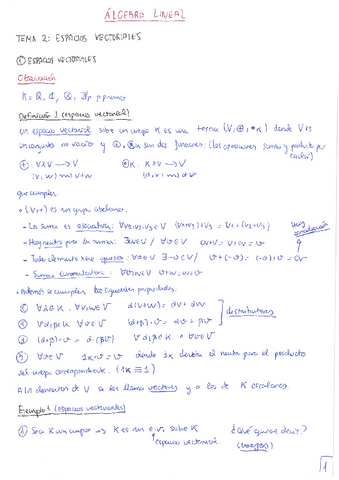 ÁLGEBRA LINEAL
TEMA 2: ESPACIOS VECTORIALES
① ESPACIOS VECTORIALES
Observación
p primo
Definición 1 (espacio vectorial)
Un espacio vectorial sobre un cuerpo K es una terna (V, ⊕, *K) donde V es
un conjunto no vacío y son dos funciones: (las operaciones suma y producto por
escalar)
⊕: V×V → V
⊙K: K×V → V
(v,w) ↦ v+w
(α,v) ↦ αv
que cumplen:
• (V,+) es un grupo abeliano.
- La suma es asociativa: ∀v1,v2,v3 ∈ V (v1+v2)+v3 = v1+(v2+v3)
- Hay neutro para la suma: ∃ ∈ V / ∀v∈V
- Todo elemento tiene opuesto: ∀v∈V ∃ -v∈V / v+(-v) = (-v)+v = 0v
- Suma conmutativa: ∀v,w∈V v+w=w+v
• Además se cumplen las siguientes propiedades:
① ∀α∈K, ∀v,w∈V α(v+w) = αv+αw
distributivas
② ∀α,β∈K ∀v∈V (α+β)·v = αv+βv
③ (αβ)·v = α(βv) ∀α,β∈K ∧ ∀v∈V
④ ∀v∈V 1K·v=v donde 1K denota el neutro para el producto
del cuerpo correspondiente. (1K ≡ 1)
A los elementos de V se les llama vectores y a los de K escalares.
Ejemplo 1 (espacios vectoriales)
① Sea K un cuerpo → K es un e.v. sobre K
¿Qué quiere decir?
espacio vectorial
1